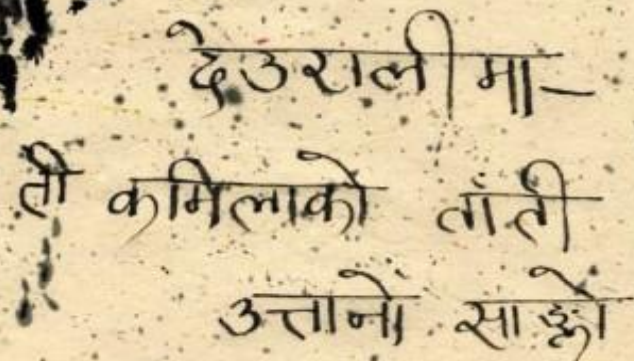 देउराली मा–
ती कमिलाको ताँती
उत्तानो साङ्लो